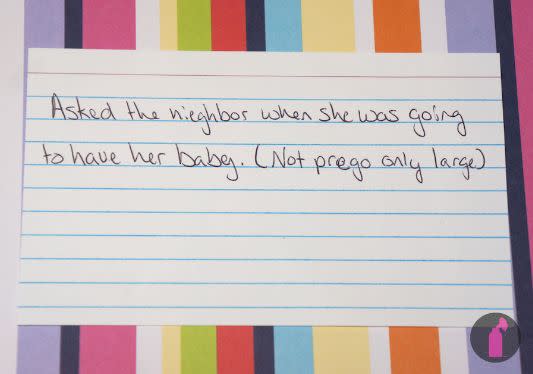 Asked the nieghbor when she was going
to have her baby. (Not prego only large)